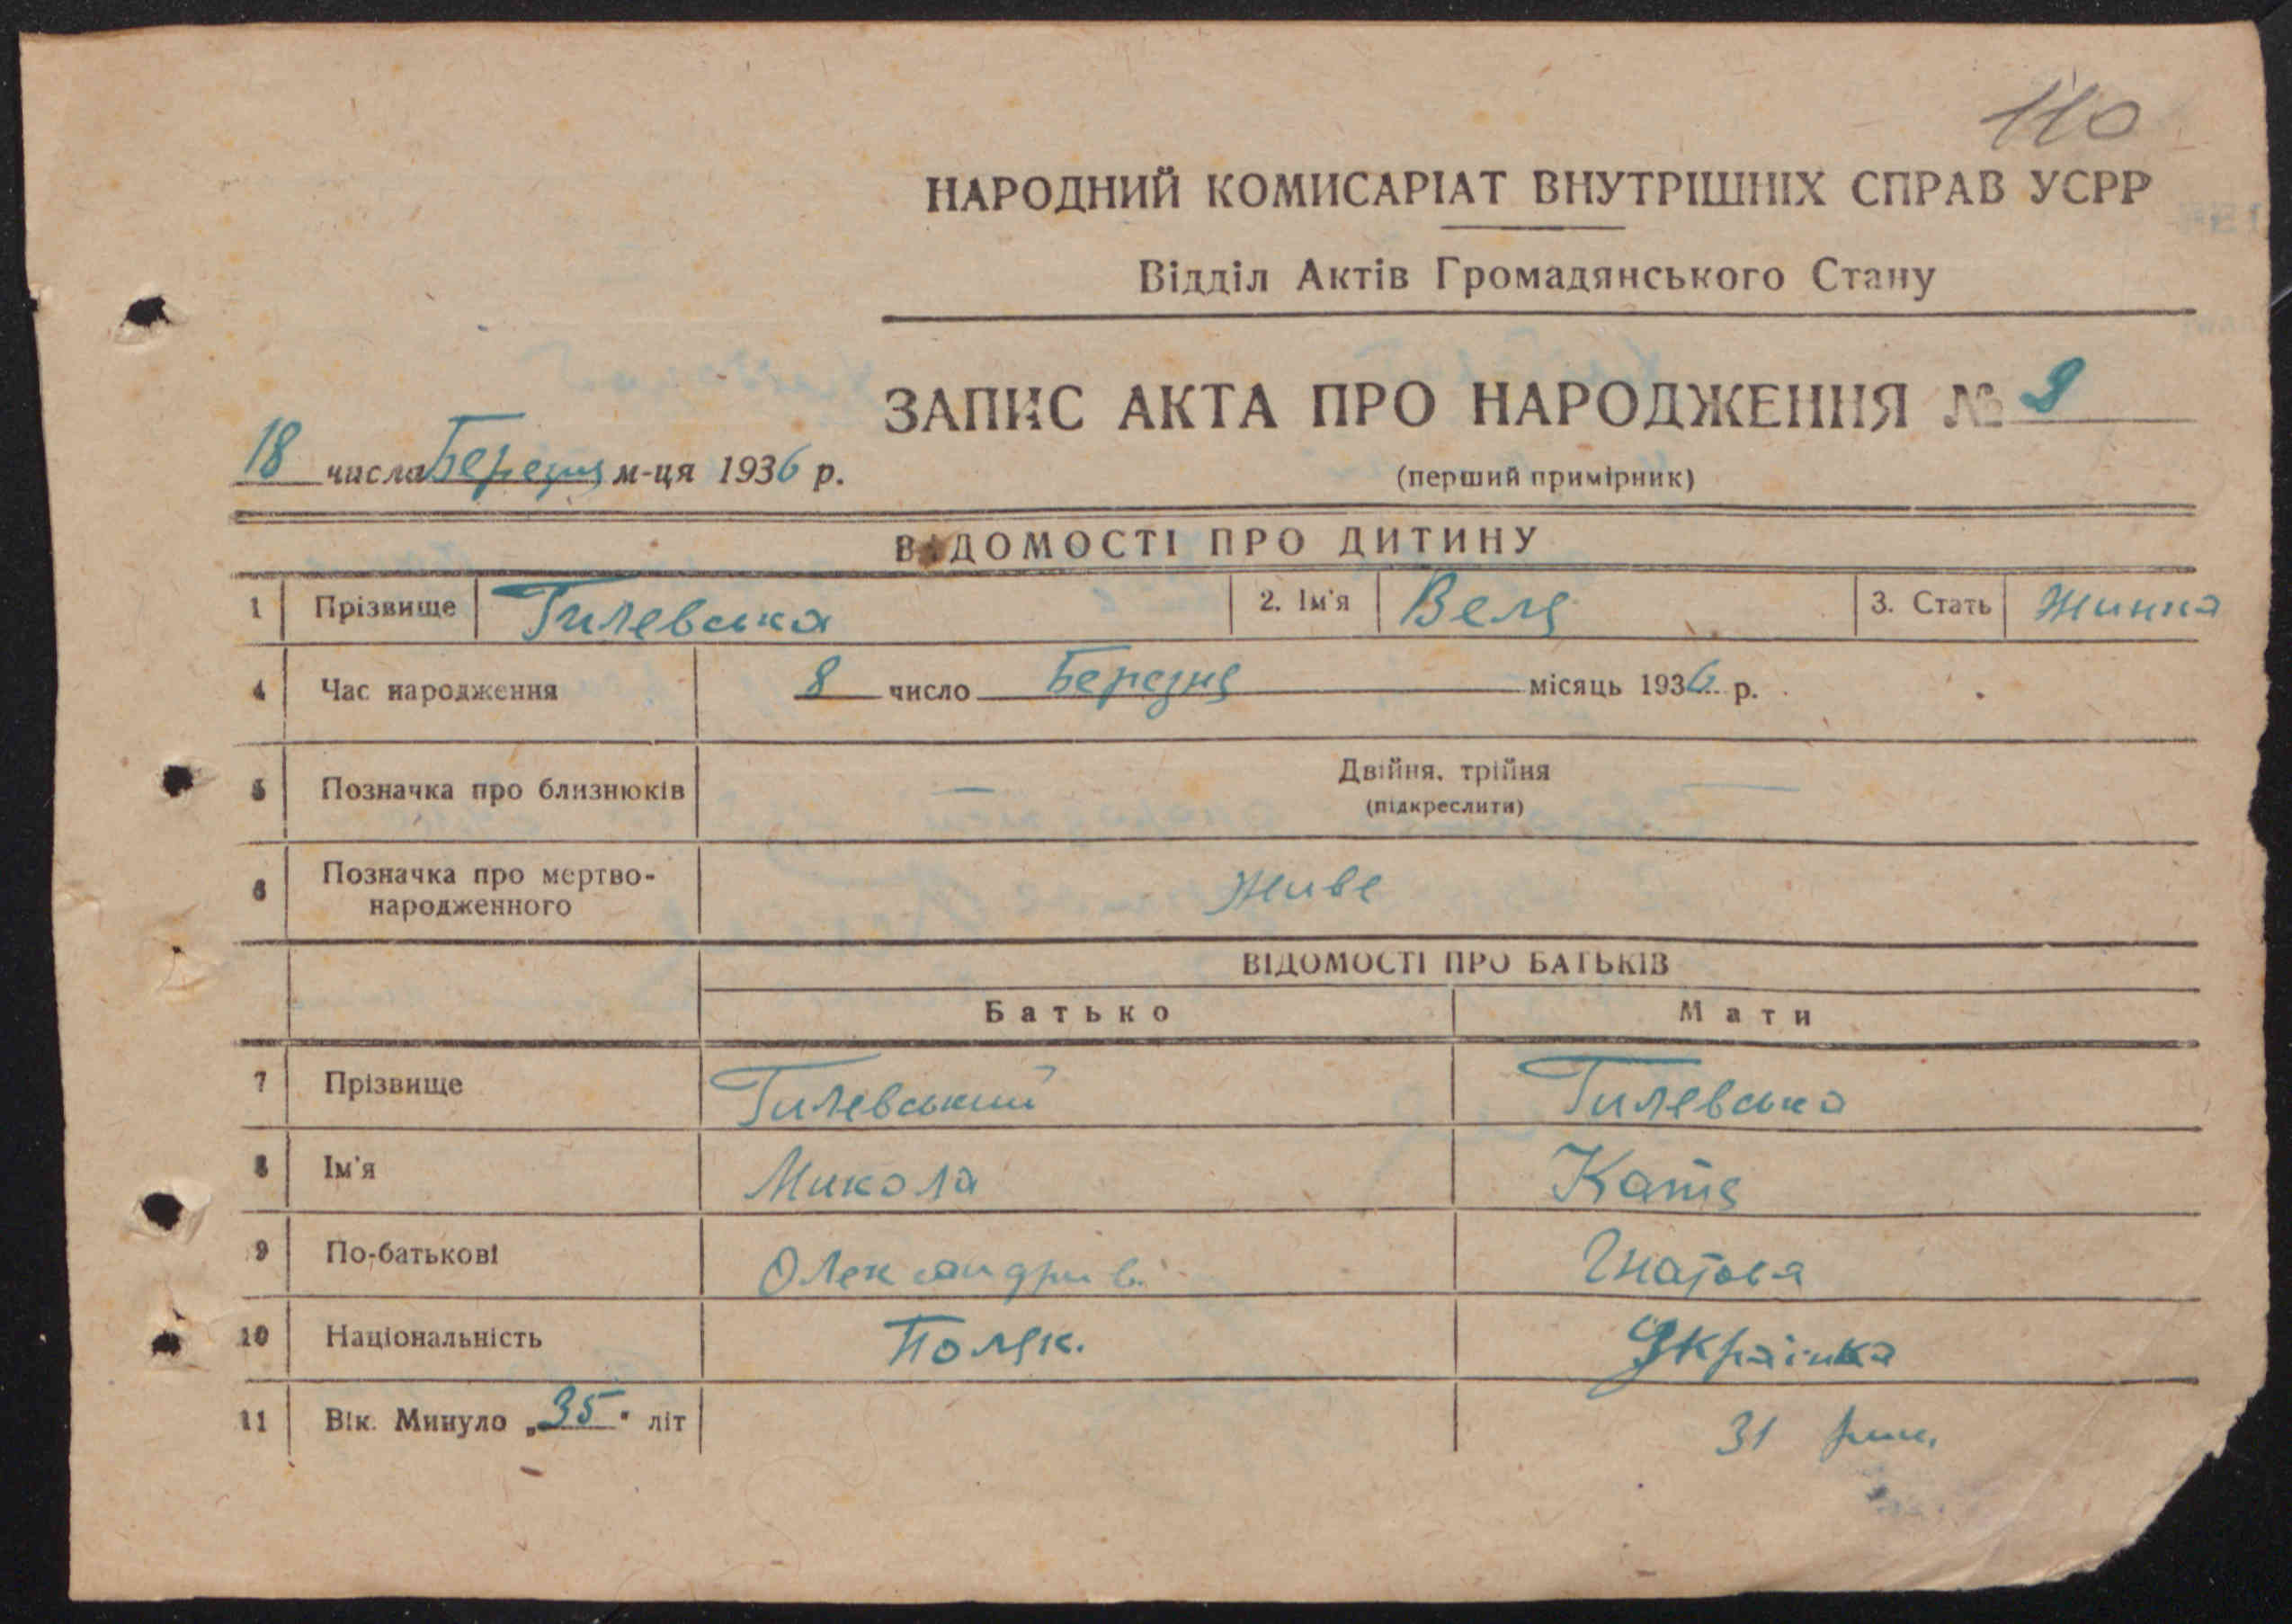 110
НАРОДНИЙ КОМИСАРІАТ ВНУТРІШНІХ СПРАВ УСРР
Відділ Актів Громадянського Стану
ЗАПИС АКТА ПРО НАРОДЖЕННЯ № 9
18 числа Березня м-ця 1936 р.
(перший примірник)
ВІДОМОСТІ ПРО ДИТИНУ
1 Прізвище Гилевська 2. Ім'я Веля 3. Стать Жинка
4 Час народження 8 число Березня місяць 1936 р.
5 Позначка про близнюків — Двійня, трійня —
(підкреслити)
6 Позначка про мертво-
народженного Живе
ВІДОМОСТІ ПРО БАТЬКІВ
Батько Мати
7 Прізвище Гилевський Гилевська
8 Ім'я Микола Катя
9 По-батькові Олександрив. Гнатова
10 Національність Поляк. Українка
11 Вік. Минуло „35" літ 31 рик.